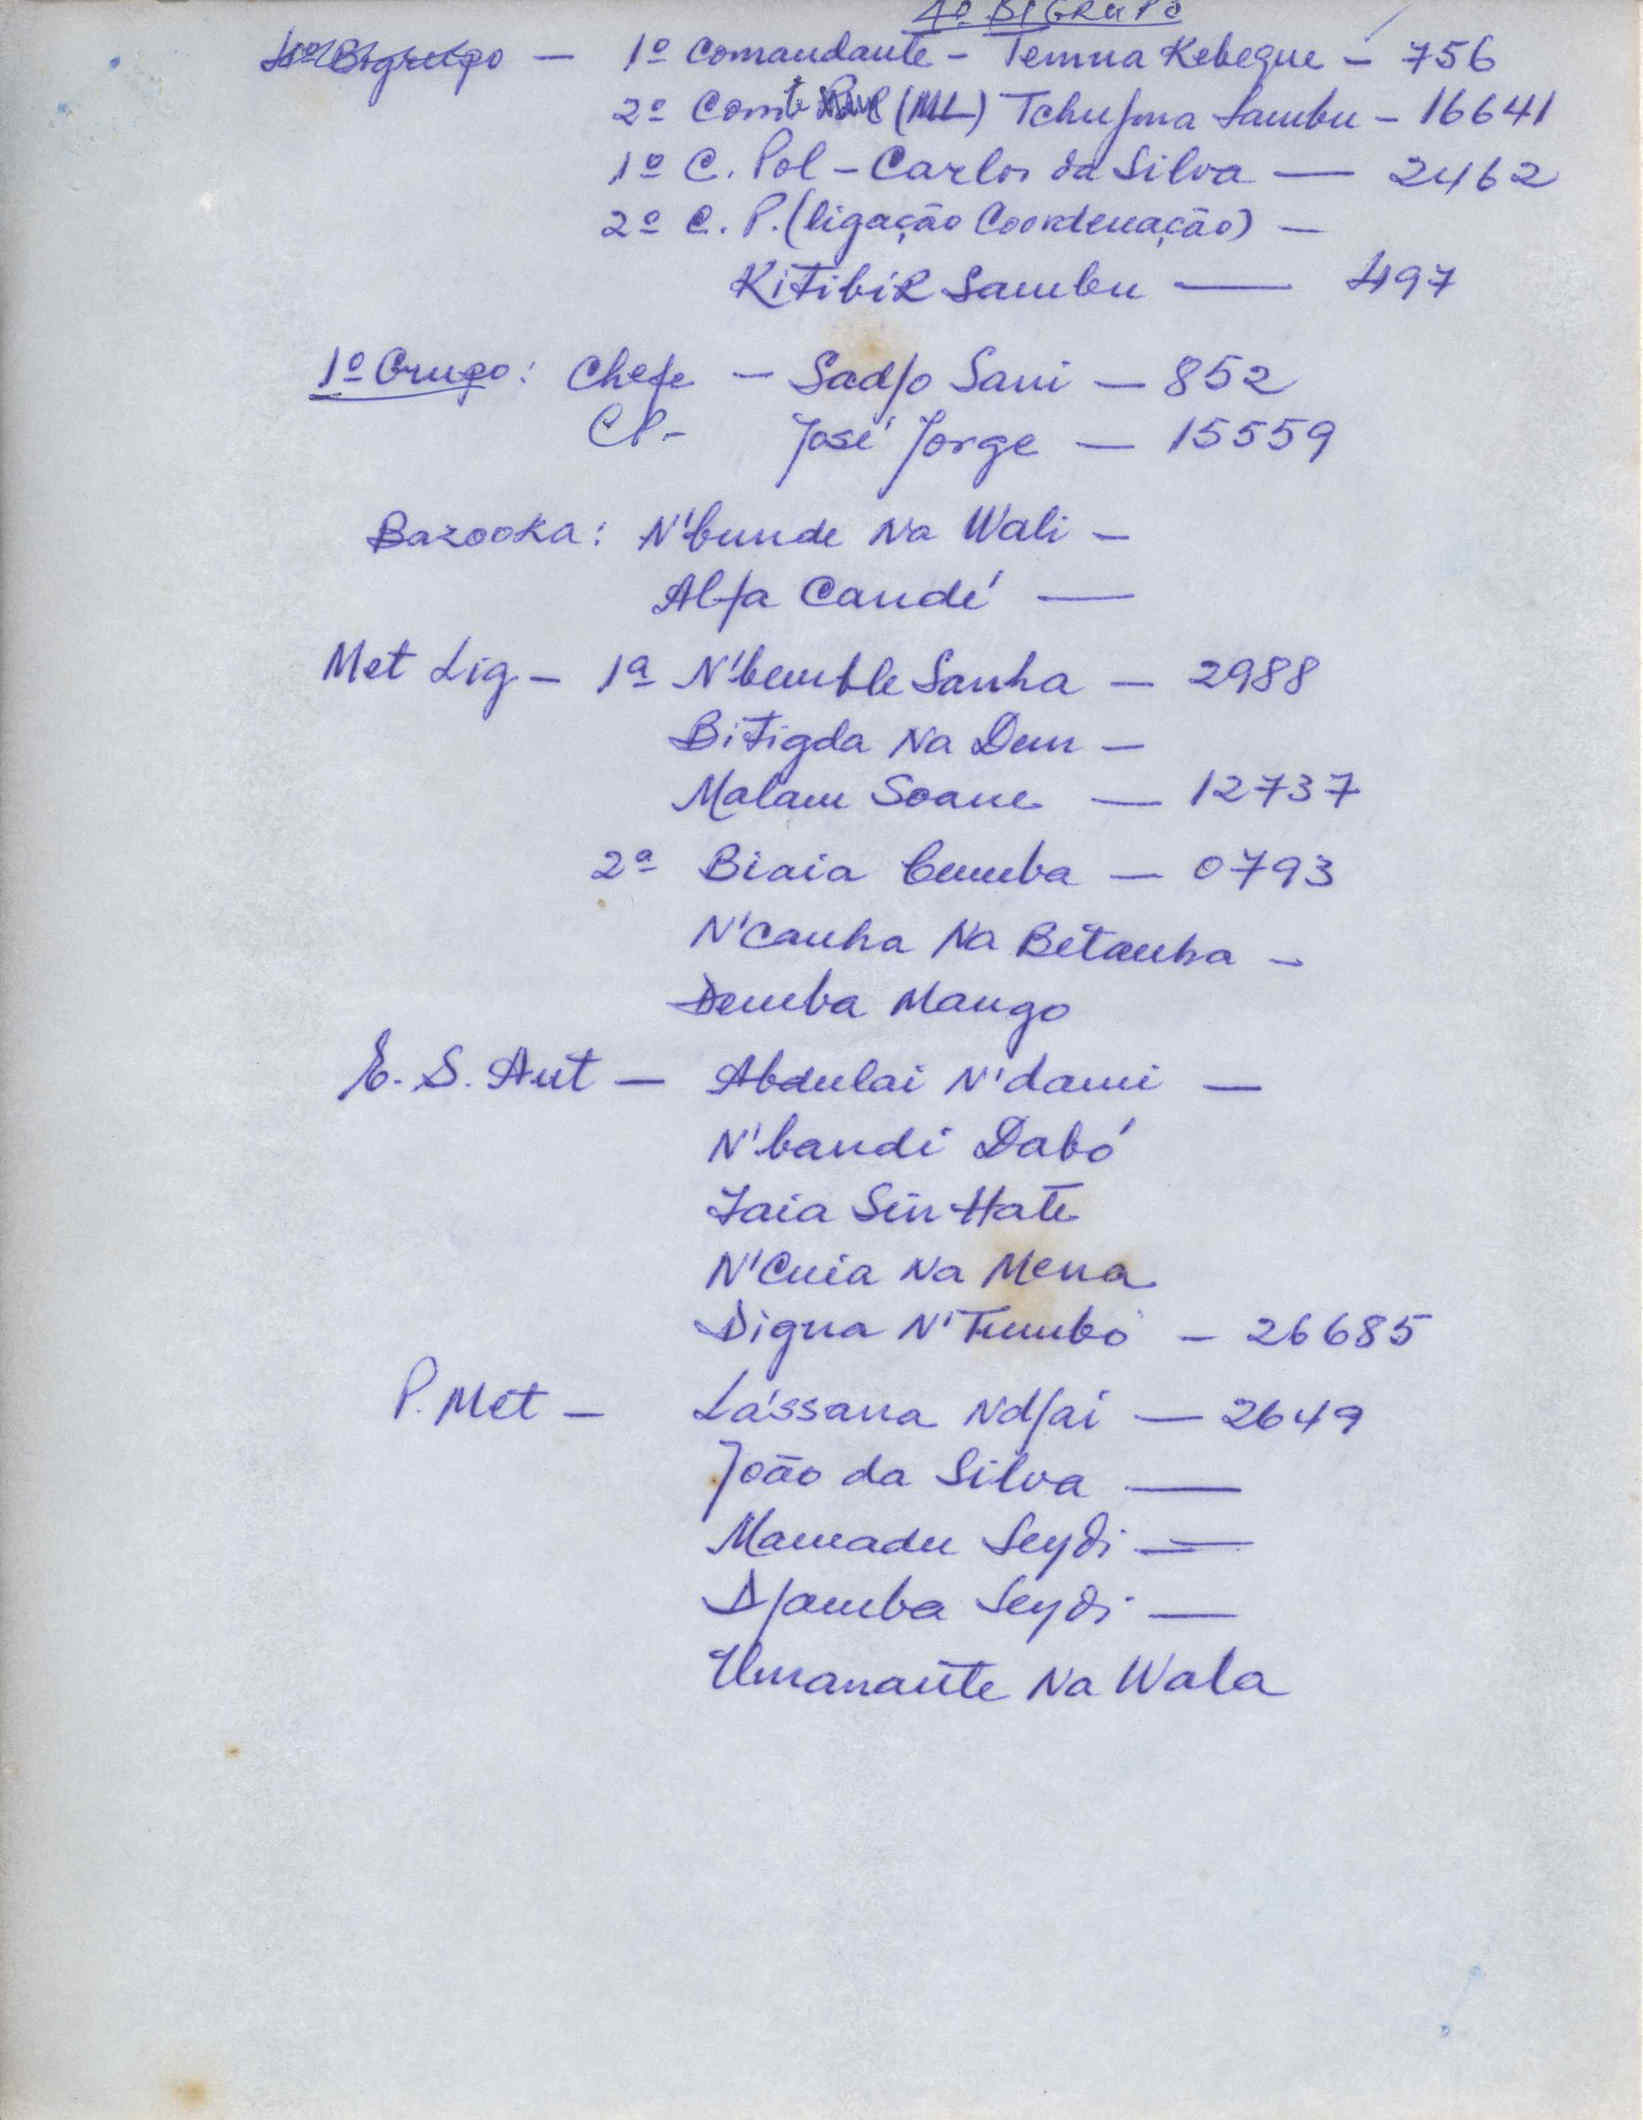 4º BIGRUPO
4º Bigrupo — 1º Comandante - Temna Kebegue — 756
2º Comte (ML) Tchujma Sambu — 16641
1º C. Pol — Carlos da Silva — 2462
2º C. P. (ligação Coordenação) —
Kitibil Sambu — 497
1º Grupo: Chefe — Sadjo Sani — 852
CP - José Jorge — 15559
Bazooka: N'bunde Na Wali —
Alfa Candé —
Met Lig — 1ª N'bemble Sanha — 2988
Bitigda Na Dum —
Malam Soane — 12737
2ª Biaia Cumba — 0793
N'canha Na Betanha —
Demba Mango
E. S. Aut — Abdulai N'dami —
N'bandi Dabó
Iaia Sin Hate
N'Cuia Na Mena
Digna N'Tumbo — 26685
P. Met — Lássana Ndjai — 2649
João da Silva —
Mamadu Seydi —
Djamba Seydi —
Umanante Na Wala